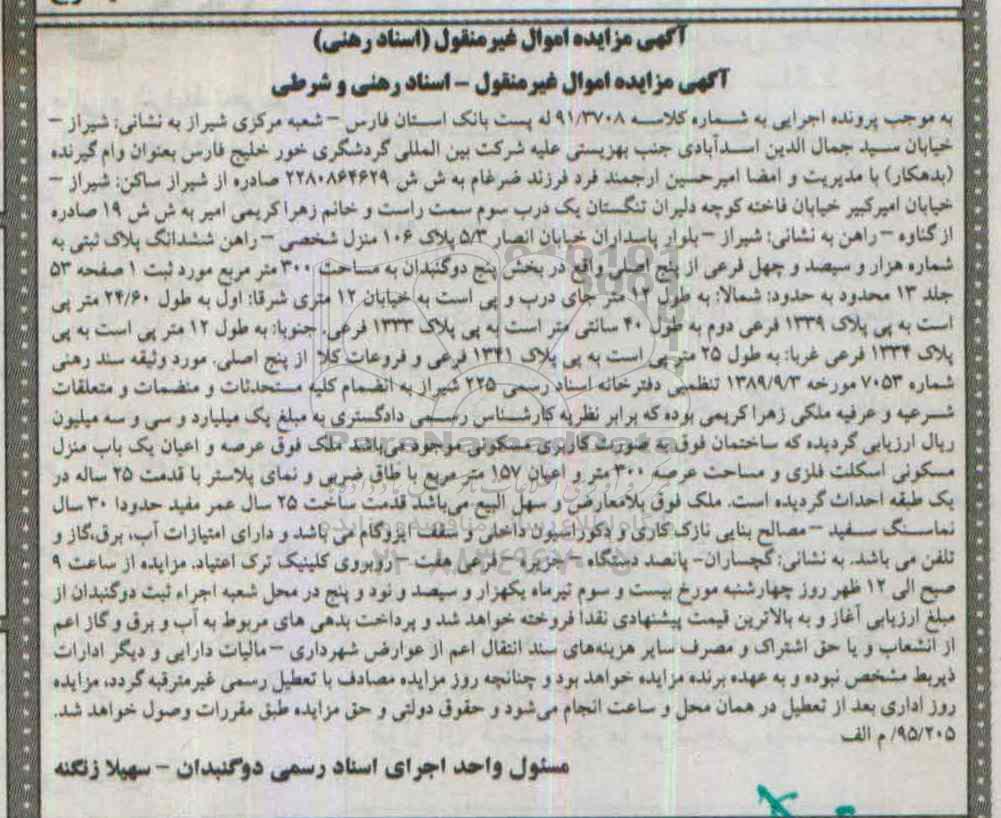 آگهی مزایده اموال غیرمنقول (اسناد رهنی)
آگهی مزایده اموال غیرمنقول – اسناد رهنی و شرطی
به موجب پرونده اجرایی به شماره کلاسه ۹۱/۳۷۰۸ له پست بانک استان فارس – شعبه مرکزی شیراز به نشانی: شیراز –
خیابان سید جمال الدین اسدآبادی جنب بهزیستی علیه شرکت بین المللی گردشگری خور خلیج فارس بعنوان وام گیرنده
(بدهکار) با مدیریت و امضا امیرحسین ارجمند فرد فرزند ضرغام به ش ش ۲۲۸۰۸۶۴۶۲۹ صادره از شیراز ساکن: شیراز –
خیابان امیرکبیر خیابان فاخته کوچه دلیران تنگستان یک درب سوم سمت راست و خانم زهرا کریمی امیر به ش ش ۱۹ صادره
از گناوه – راهن به نشانی: شیراز – بلوار پاسداران خیابان انصار ۵/۳ پلاک ۱۰۶ منزل شخصی – راهن ششدانگ پلاک ثبتی به
شماره هزار و سیصد و چهل فرعی از پنج اصلی واقع در بخش پنج دوگنبدان به مساحت ۳۰۰ متر مربع مورد ثبت ۱ صفحه ۵۳
جلد ۱۳ محدود به حدود: شمالا: به طول ۱۲ متر جای درب و پی است به خیابان ۱۲ متری شرقا: اول به طول ۲۴/۶۰ متر پی
است به پی پلاک ۱۳۳۹ فرعی دوم به طول ۴۰ سانتی متر است به پی پلاک ۱۳۳۳ فرعی. جنوبا: به طول ۱۲ متر پی است به پی
پلاک ۱۳۳۴ فرعی غربا: به طول ۲۵ متر پی است به پی پلاک ۱۳۴۱ فرعی و فروعات کلا از پنج اصلی. مورد وثیقه سند رهنی
شماره ۷۰۵۳ مورخه ۱۳۸۹/۹/۳ تنظیمی دفترخانه اسناد رسمی ۲۲۵ شیراز به انضمام کلیه مستحدثات و منضمات و متعلقات
شرعیه و عرفیه ملکی زهرا کریمی بوده که برابر نظریه کارشناس رسمی دادگستری به مبلغ یک میلیارد و سی و سه میلیون
ریال ارزیابی گردیده که ساختمان فوق به صورت کاربری مسکونی موجود می‌باشد ملک فوق عرصه و اعیان یک باب منزل
مسکونی اسکلت فلزی و مساحت عرصه ۳۰۰ متر و اعیان ۱۵۷ متر مربع با طاق ضربی و نمای پلاستر با قدمت ۲۵ ساله در
یک طبقه احداث گردیده است. ملک فوق بلامعارض و سهل البیع می‌باشد قدمت ساخت ۲۵ سال عمر مفید حدودا ۳۰ سال
نماسنگ سفید – مصالح بنایی نازک کاری و دکوراسیون داخلی و سقف ایزوگام می باشد و دارای امتیازات آب، برق،گاز و
تلفن می باشد. به نشانی: گچساران- پانصد دستگاه – جزیره – فرعی هفت – روبروی کلینیک ترک اعتیاد. مزایده از ساعت ۹
صبح الی ۱۲ ظهر روز چهارشنبه مورخ بیست و سوم تیرماه یکهزار و سیصد و نود و پنج در محل شعبه اجراء ثبت دوگنبدان از
مبلغ ارزیابی آغاز و به بالاترین قیمت پیشنهادی نقدا فروخته خواهد شد و پرداخت بدهی های مربوط به آب و برق و گاز اعم
از انشعاب و یا حق اشتراک و مصرف سایر هزینه‌های سند انتقال اعم از عوارض شهرداری – مالیات دارایی و دیگر ادارات
ذیربط مشخص نبوده و به عهده برنده مزایده خواهد بود و چنانچه روز مزایده مصادف با تعطیل رسمی غیرمترقبه گردد، مزایده
روز اداری بعد از تعطیل در همان محل و ساعت انجام می‌شود و حقوق دولتی و حق مزایده طبق مقررات وصول خواهد شد.
۹۵/۲۰۵/ م الف
مسئول واحد اجرای اسناد رسمی دوگنبدان – سهیلا زنگنه